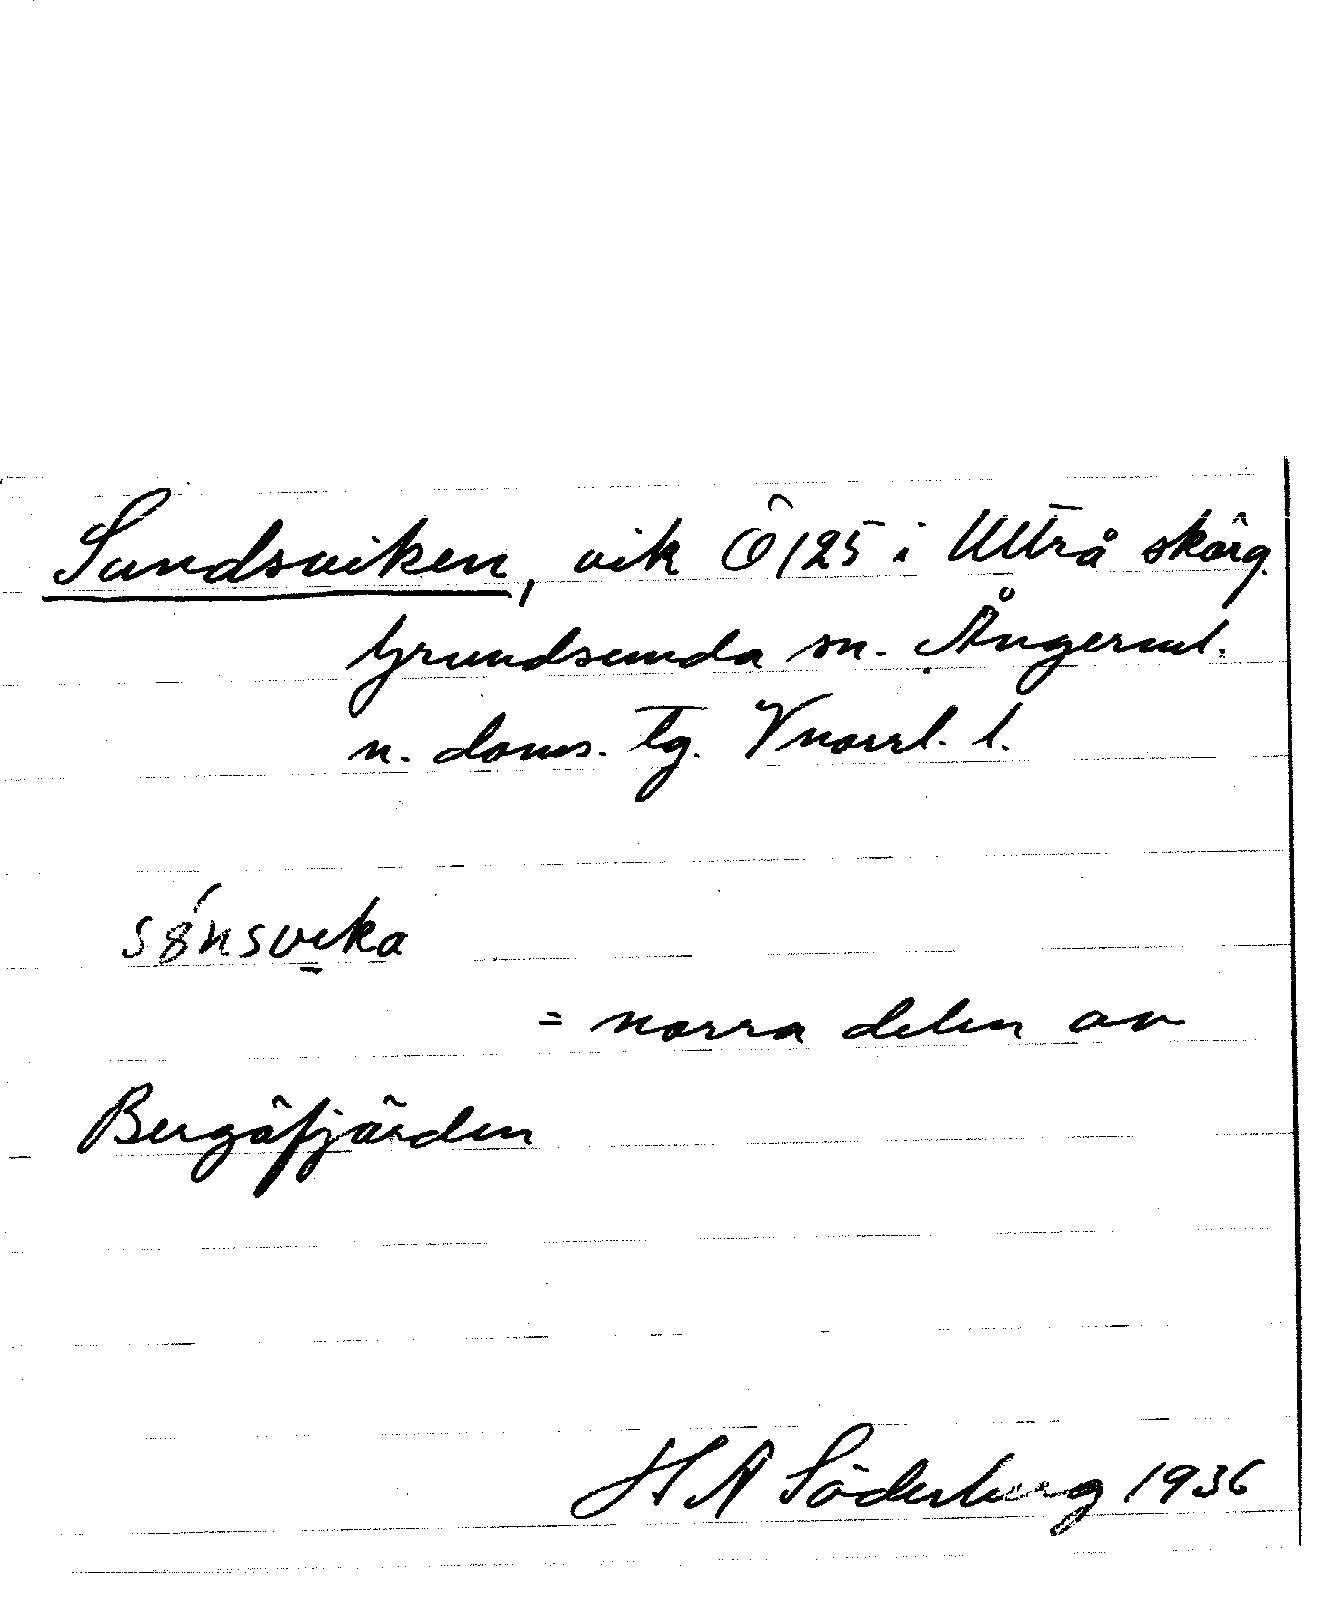 Sundsviken, vik Ö 125 i Ultrå skärg.
Grundsunda sn. Ångerml.
n. doms. tg. Vnorrl. l.
sɵ́nsvika
= norra delen av
Bergöfjärden
H A Söderberg 1936